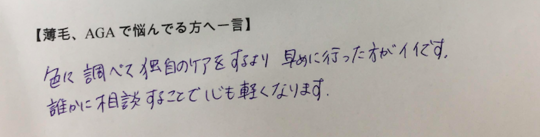 【薄毛、AGAで悩んでる方へ一言】
色々調べて独自のケアをするより早めに行った方がイイです。
誰かに相談することで心も軽くなります。